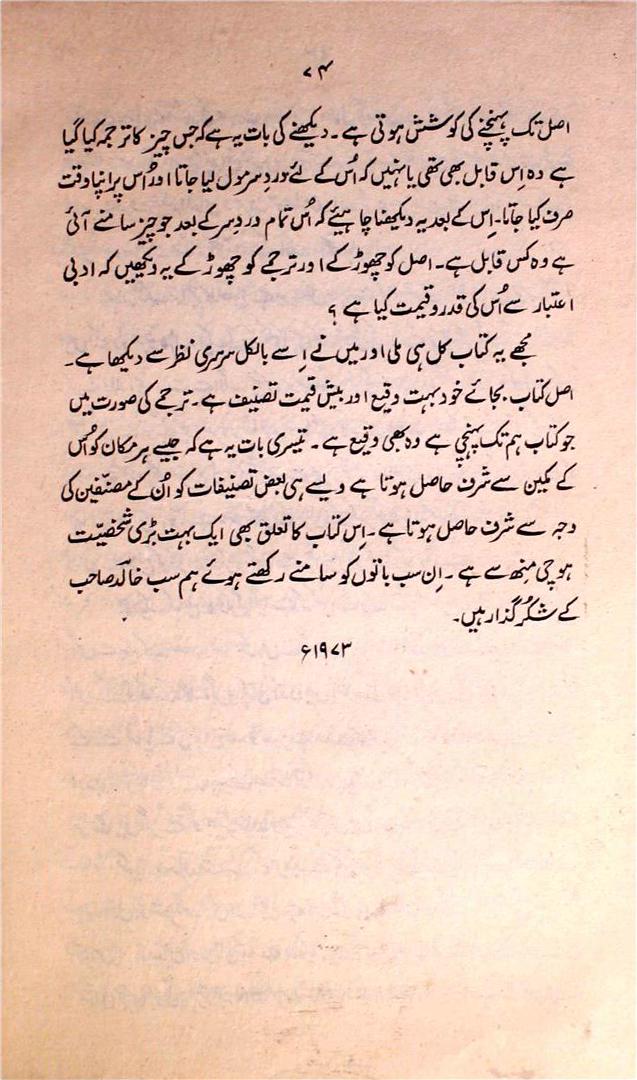 ۷۴
اصل تک پہنچنے کی کوشش ہوتی ہے۔ دیکھنے کی بات یہ ہے کہ جس چیز کا ترجمہ کیا گیا
ہے وہ اِس قابل بھی تھی یا نہیں کہ اُس کے لئے دردِ سر مول لیا جاتا اور اُس پر اپنا وقت
صرف کیا جاتا۔ اِس کے بعد یہ دیکھنا چاہیئے کہ اُس تمام دردِ سر کے بعد جو چیز سامنے آئی
ہے وہ کس قابل ہے۔ اصل کو چھوڑ کے اور ترجمے کو چھوڑ کے یہ دیکھیں کہ ادبی
اعتبار سے اُس کی قدر و قیمت کیا ہے؟
مجھے یہ کتاب کل ہی ملی اور میں نے اِسے بالکل سرسری نظر سے دیکھا ہے۔
اصل کتاب بجائے خود بہت وقیع اور بیش قیمت تصنیف ہے۔ ترجمے کی صورت میں
جو کتاب ہم تک پہنچی ہے وہ بھی وقیع ہے۔ تیسری بات یہ ہے کہ جیسے ہر مکان کو اُس
کے مکین سے شرف حاصل ہوتا ہے ویسے ہی بعض تصنیفات کو اُن کے مصنّفین کی
وجہ سے شرف حاصل ہوتا ہے۔ اِس کتاب کا تعلق بھی ایک بہت بڑی شخصیّت
ہوچی منھ سے ہے۔ اِن سب باتوں کو سامنے رکھتے ہوئے ہم سب خالد صاحب
کے شکر گذار ہیں۔
۱۹۷۳ء